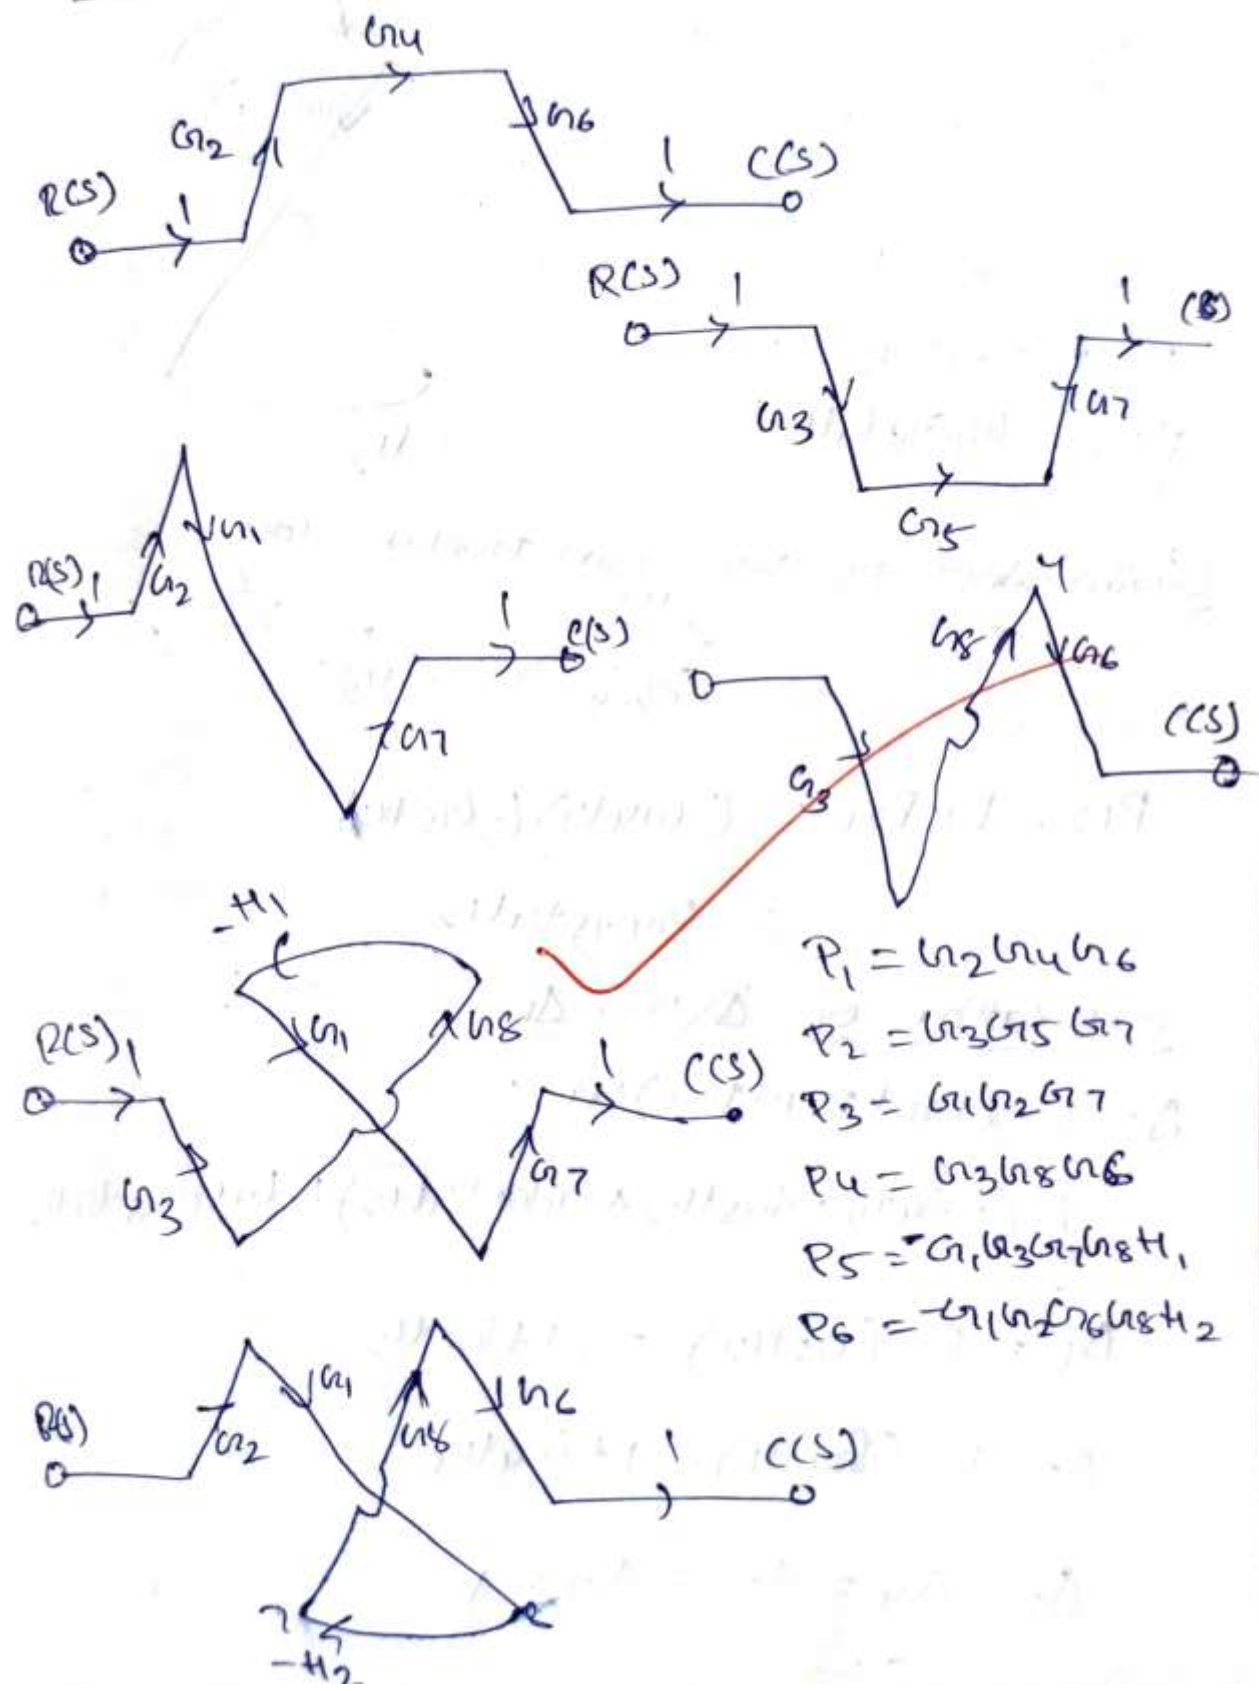 G4
G2
G6
R(S)
1
1
C(S)
R(S)
1
1
C(S)
G3
G7
G5
G1
R(S)
1
G2
1
C(S)
G7
4
G8
G6
C(S)
G3
-H1
G1
G8
R(S)
1
1
C(S)
G3
G7
P1 = G2G4G6
P2 = G3G5G7
P3 = G1G2G7
P4 = G3G8G6
P5 = -G1G3G7G8H1
P6 = -G1G2G6G8H2
G1
G6
R(S)
G2
G8
1
C(S)
7
-H2